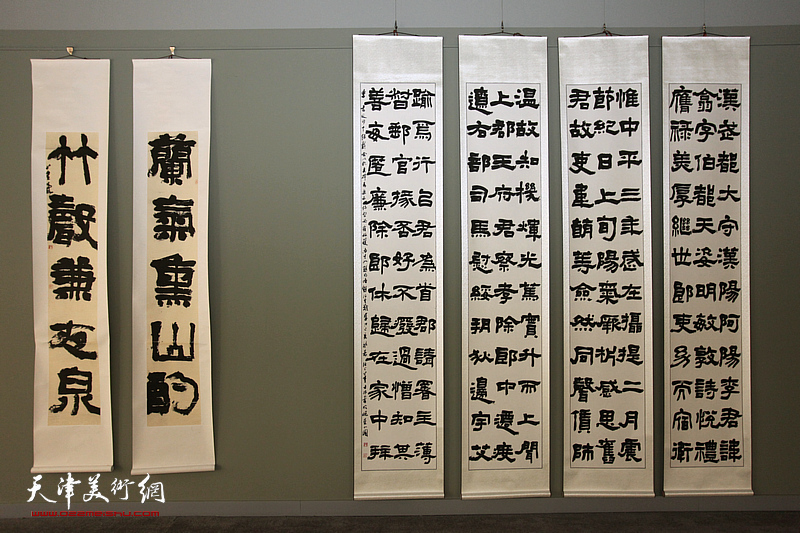 蘭氣熏山酌
竹聲兼夜泉
漢武都大守漢陽阿陽李君諱
翕字伯都天姿明敏敦詩悅禮
膺祿美厚繼世郎吏幼而宿衛
惟中平三年歲在攝提二月震
節紀日上旬陽氣厥析感思舊
君故吏韋萌等僉然同聲賃師
溫故知機煇光篤實升而上聞
上郡王府君察孝除郎中遷度
遼右部司馬慰綏朔狄邊宇艾
踰焉行呂君為首郡請署主薄
督郵官掾否好不廢過憎知其
善每匿廉除郎休歸在家中拜
天津美術網